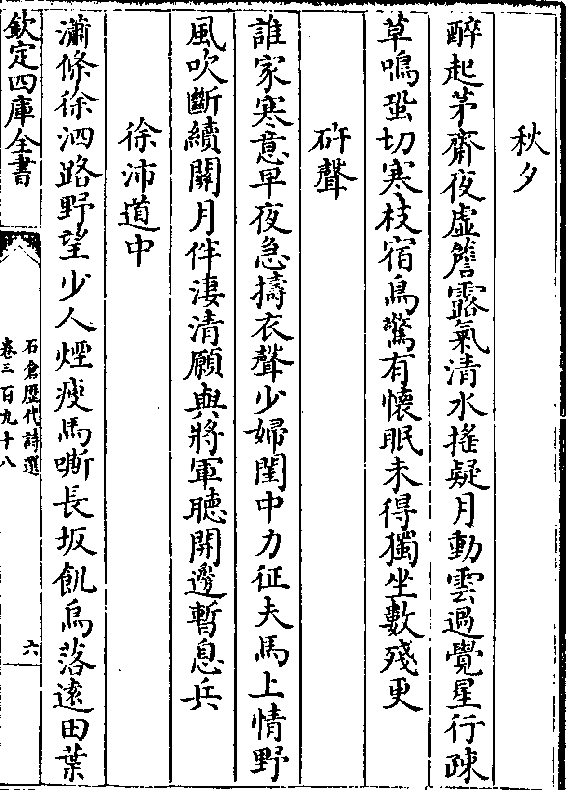 秋夕
醉起茅齋夜虚簷露氣清水揺疑月動雲過覺星行疎
草鳴蛩切寒枝宿鳥驚有懷眠未得獨坐數殘更
砧聲
誰家寒意早夜急擣衣聲少婦閨中力征夫馬上情野
風吹斷續關月伴淒清願與將軍聽開邊暫息兵
徐沛道中
瀟條徐泗路野望少人煙瘦馬嘶長坂飢烏落逺田葉
欽定四庫全書
石倉歷代詩選
卷三百九十八
六